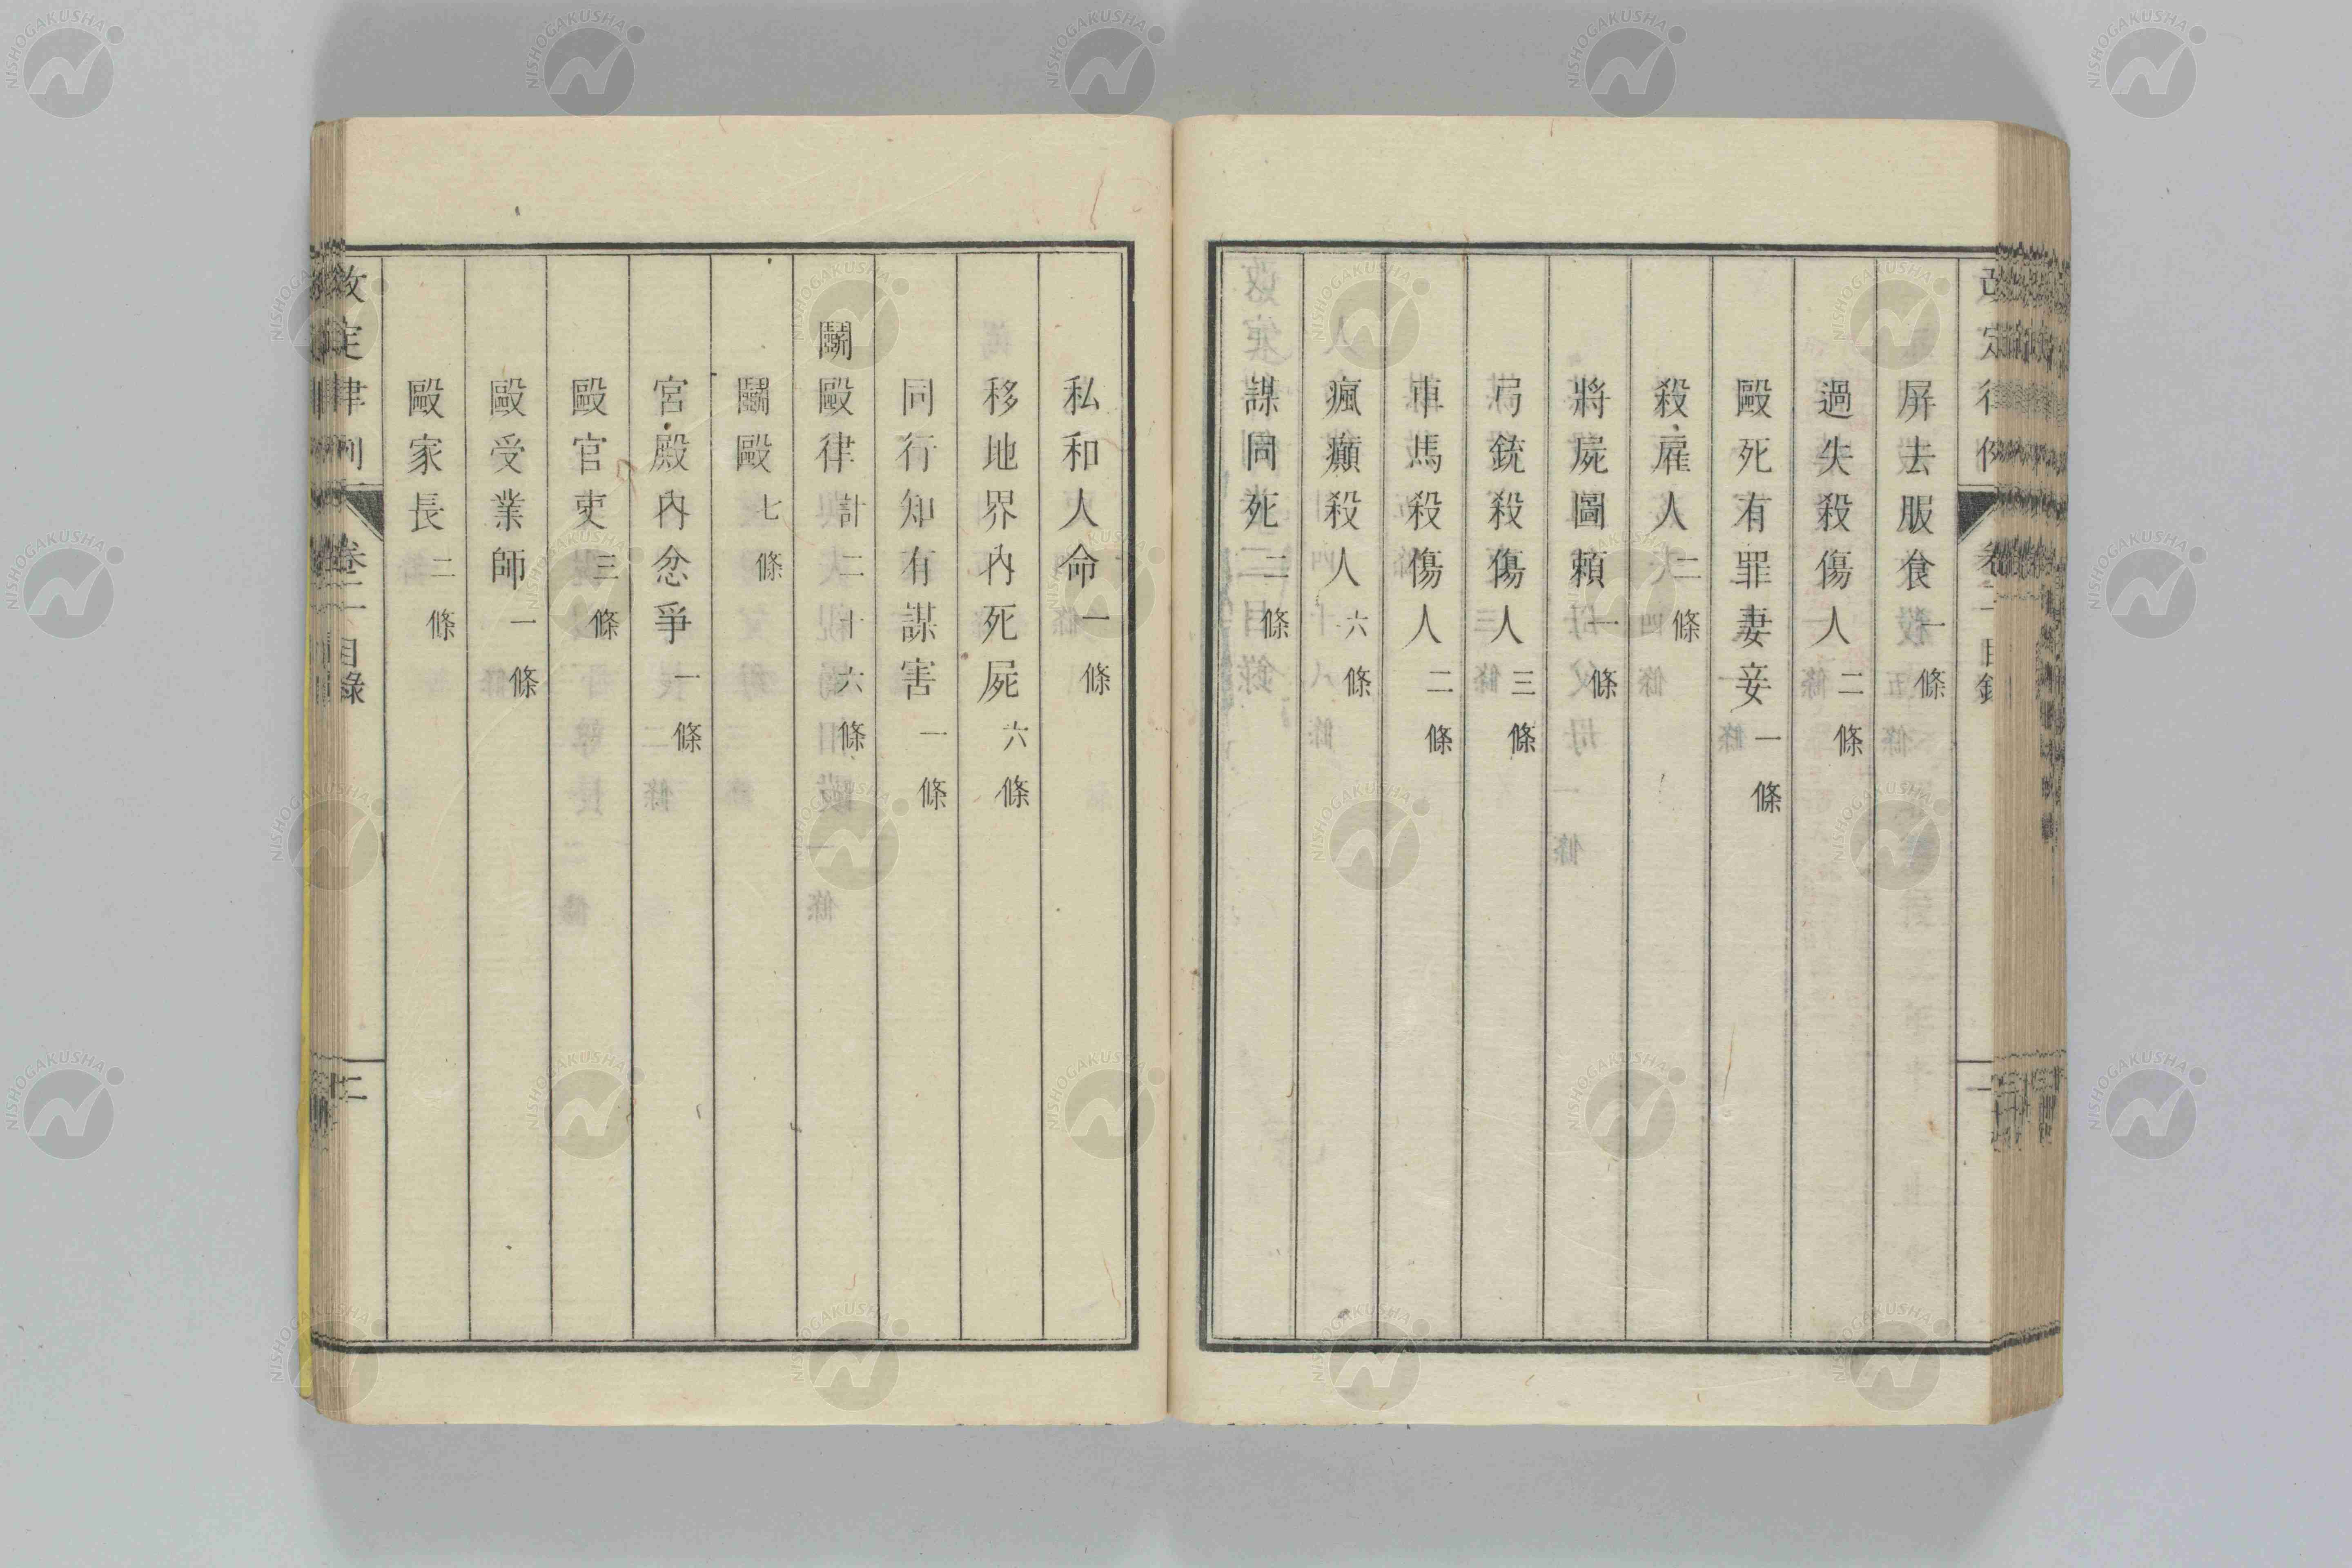 屏去服食一條
過失殺傷人二條
毆死有罪妻妾一條
殺雇人二條
將屍圖賴一條
弓銃殺傷人三條
車馬殺傷人二條
瘋癲殺人六條
謀同死二條
私和人命一條
移地界內死屍六條
同行知有謀害一條
鬭毆律計二十六條
鬭毆七條
宮殿內忿爭一條
毆官吏三條
毆受業師一條
毆家長二條
改定律例 卷二 目錄
NISHOGAKUSHA